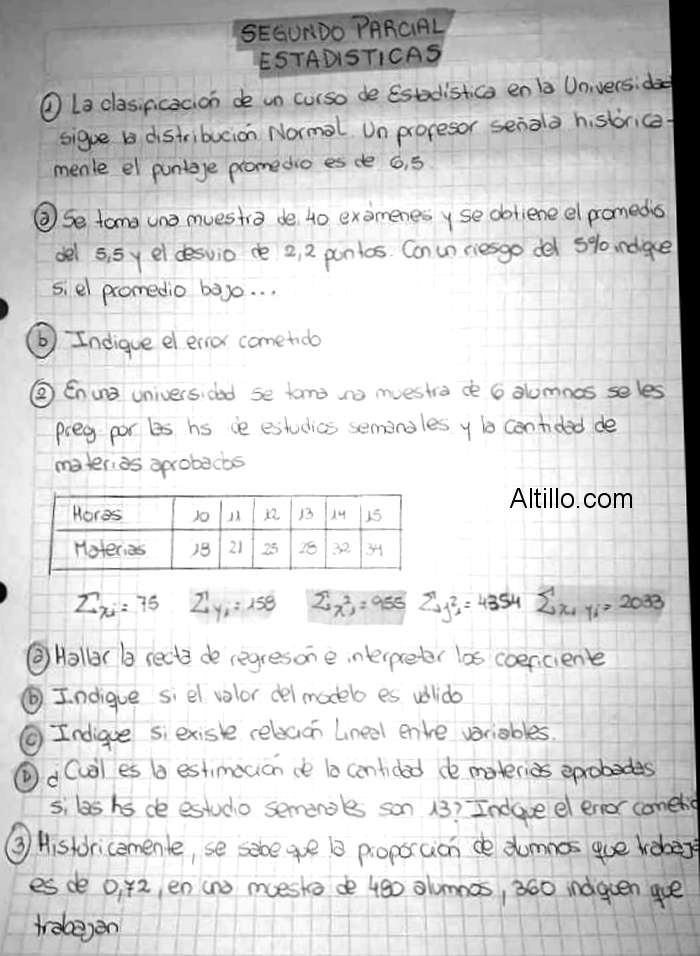 SEGUNDO PARCIAL
ESTADISTICAS
① La clasificación de un curso de Estadística en la Universidad
sigue la distribución Normal. Un profesor señala histórica-
mente el puntaje promedio es de 6,5
ⓐ Se toma una muestra de 40 exámenes y se obtiene el promedio
del 5,5 y el desvio de 2,2 puntos. Con un riesgo del 5% indique
si el promedio bajo...
ⓑ Indique el error cometido
② En una universidad se toma una muestra de 6 alumnos se les
preg por las hs de estudios semanales y la cantidad de
materias aprobados
Altillo.com
Horas 10 11 12 13 14 15
Materias 18 21 25 28 32 34
Σxi = 75 Σyi = 158 Σx²i = 955 Σy²i = 4354 Σxi yi = 2033
ⓐ Hallar la recta de regresión e interpretar los coeficiente
ⓑ Indique si el valor del modelo es válido
ⓒ Indique si existe relación Lineal entre variables.
ⓓ d Cuál es la estimación de la cantidad de materias aprobadas
si las hs de estudio semanales son 13? Indique el error cometid
③ Históricamente, se sabe que la proporción de alumnos que trabaja
es de 0,72, en una muestra de 480 alumnos, 360 indiquen que
trabajan